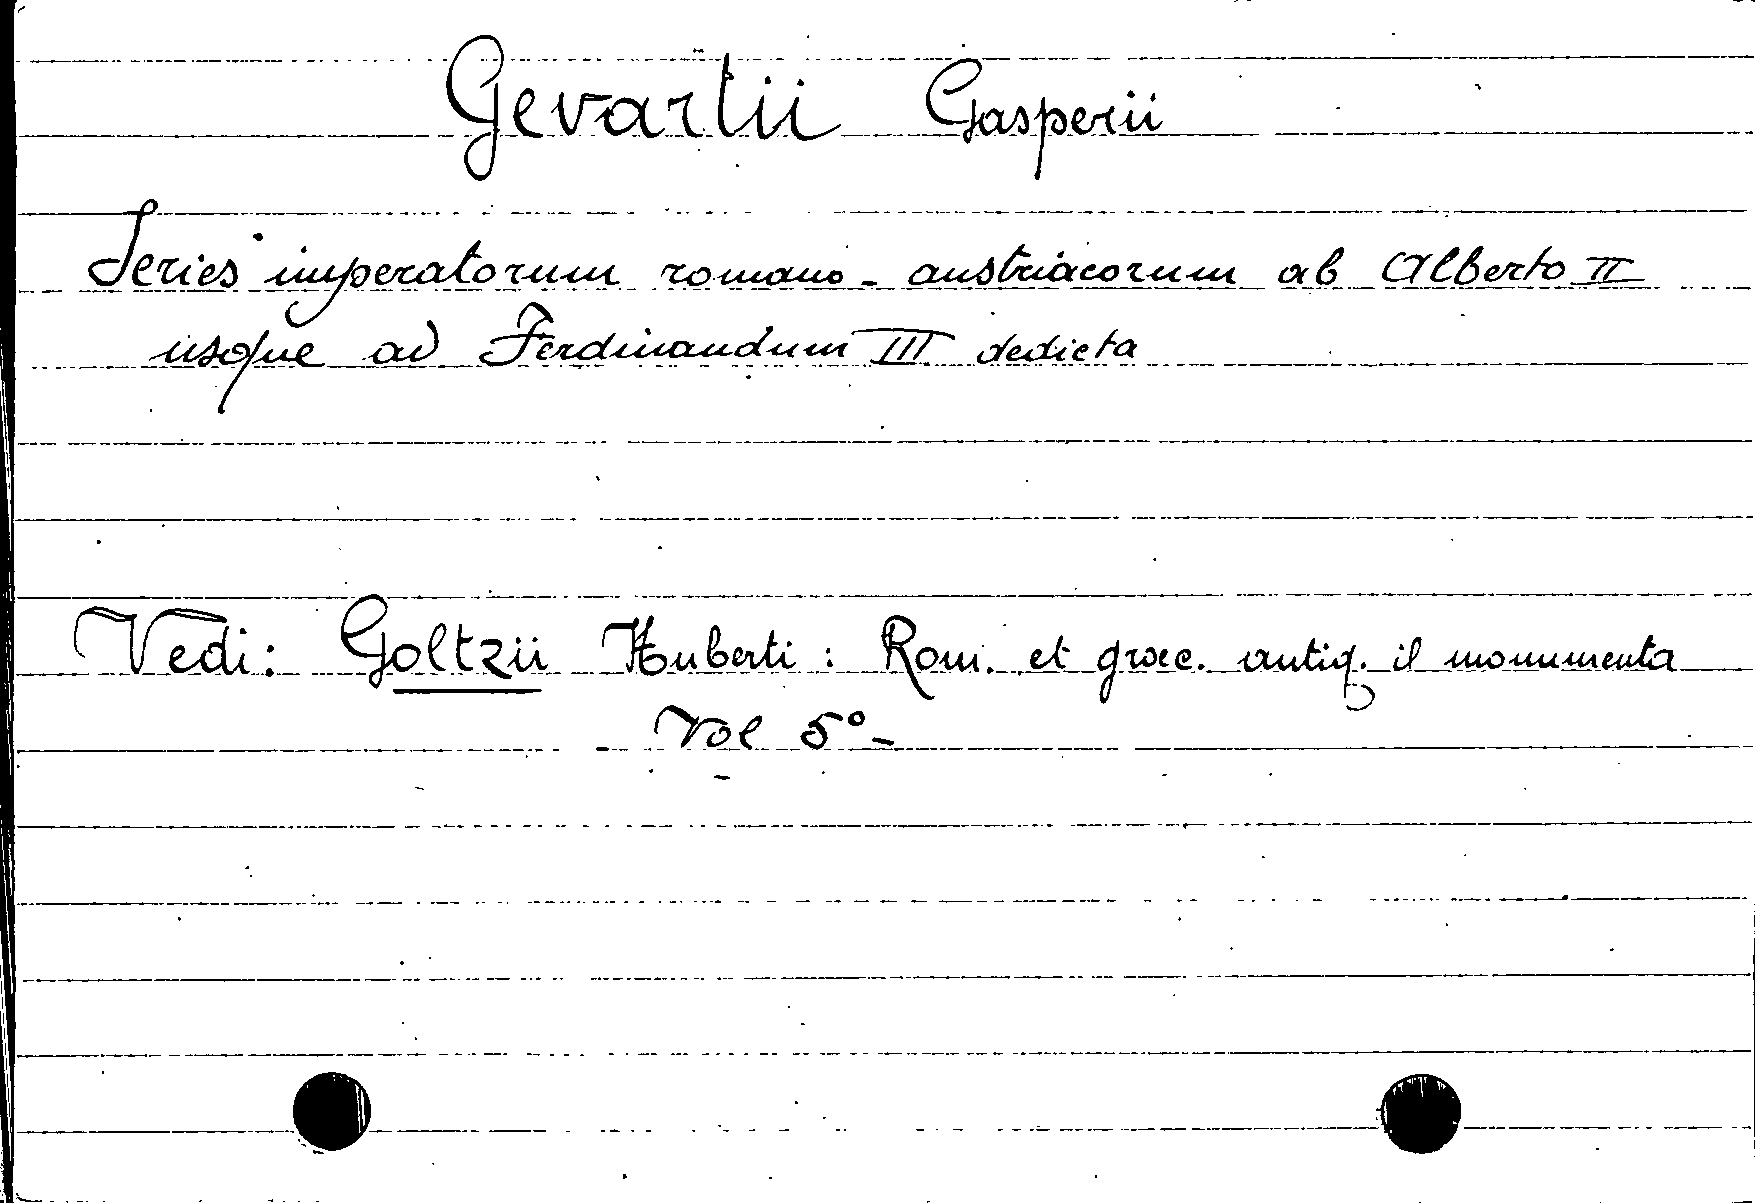 Gevartii Gasperii
Series imperatorum romano-austriacorum ab Alberto II
usque ad Ferdinandum III dedicta
Vedi: Goltzii Huberti: Rom. et graec. antiq. il monumenta
Vol 5º-